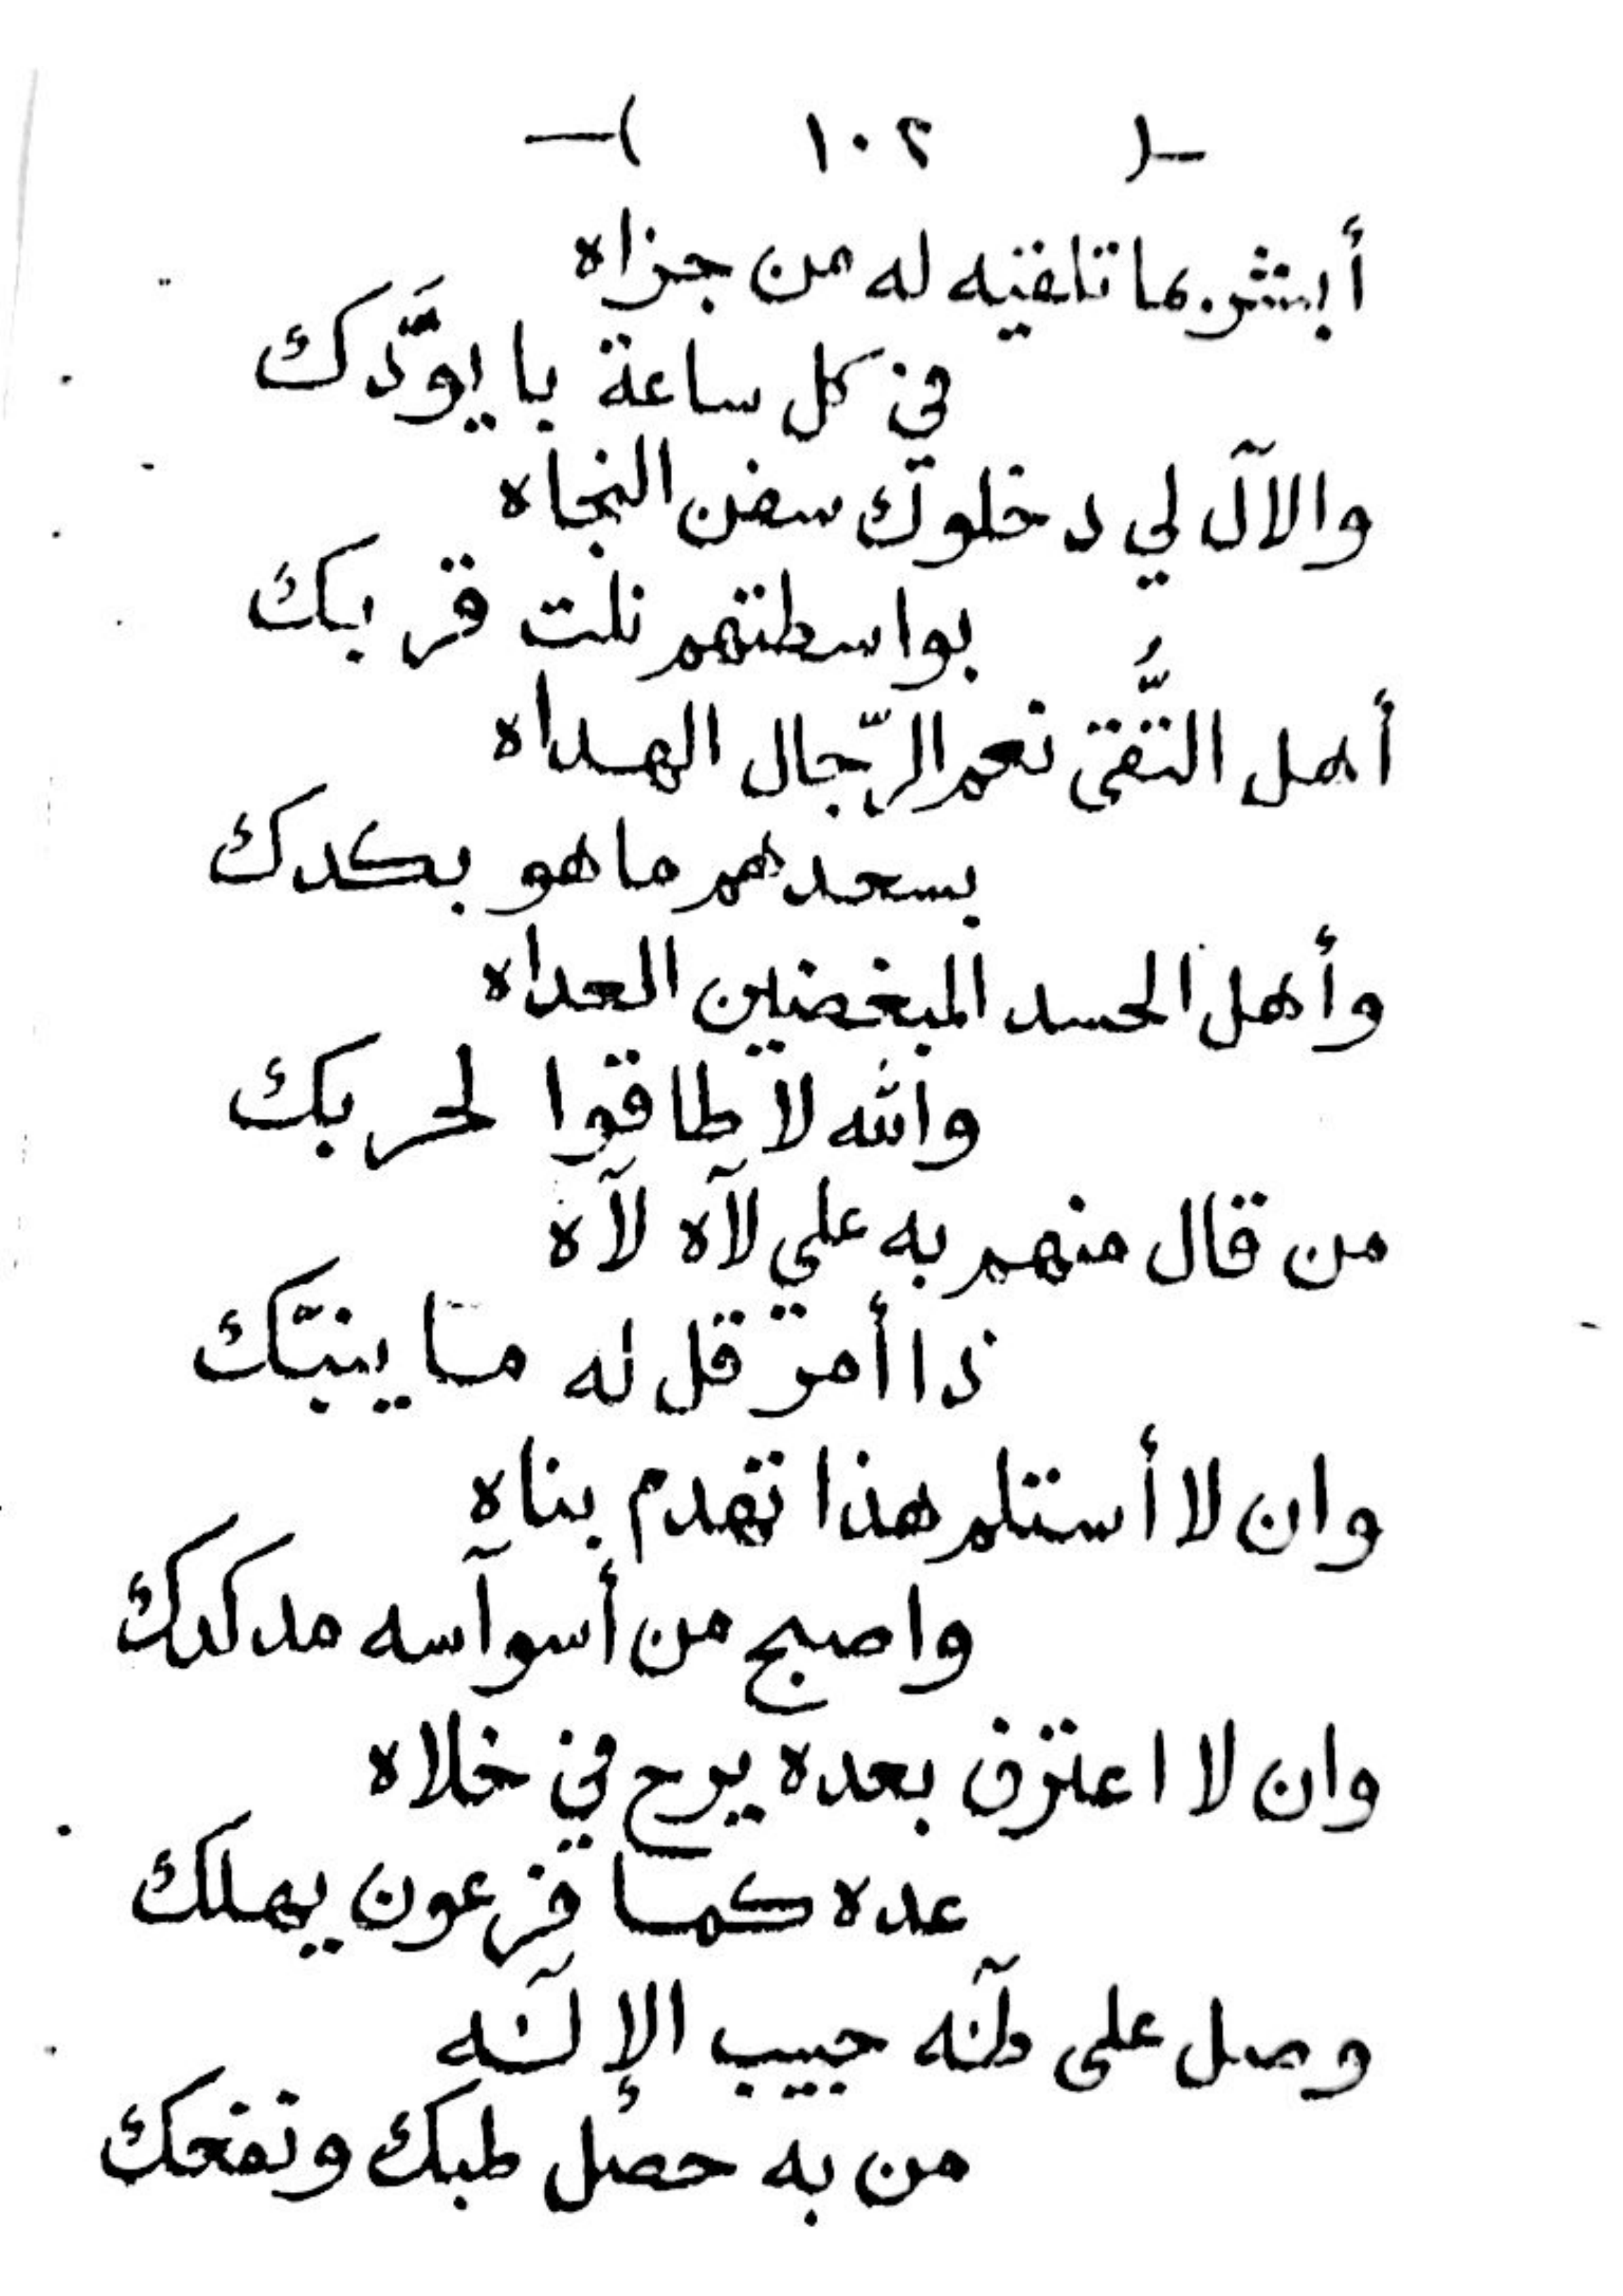 -( ١٠٢ )-
أبشر بما تلقيه له من جزاه
في كل ساعة با يوَّدك
والآل لي دخلوك سفن النجاه
بواسطتهم نلت قربك
أهل التُّقى نعم الرّجال الهداه
بسعدهم ما هو بكدك
وأهل الحسد المبغضين العداه
والله لا طاقوا لحربك
من قال منهم به علي لآه لآه
ذا أمر قل له ما ينبّك
وان لا أستلم هذا تهدم بناه
واصبح من أسوآسه مدكدك
وان لا اعترف بعده يرح في خلاه
عده كما فرعون يهلك
وصل على طٰه حبيب الإلٰه
من به حصل طبك ونفعك